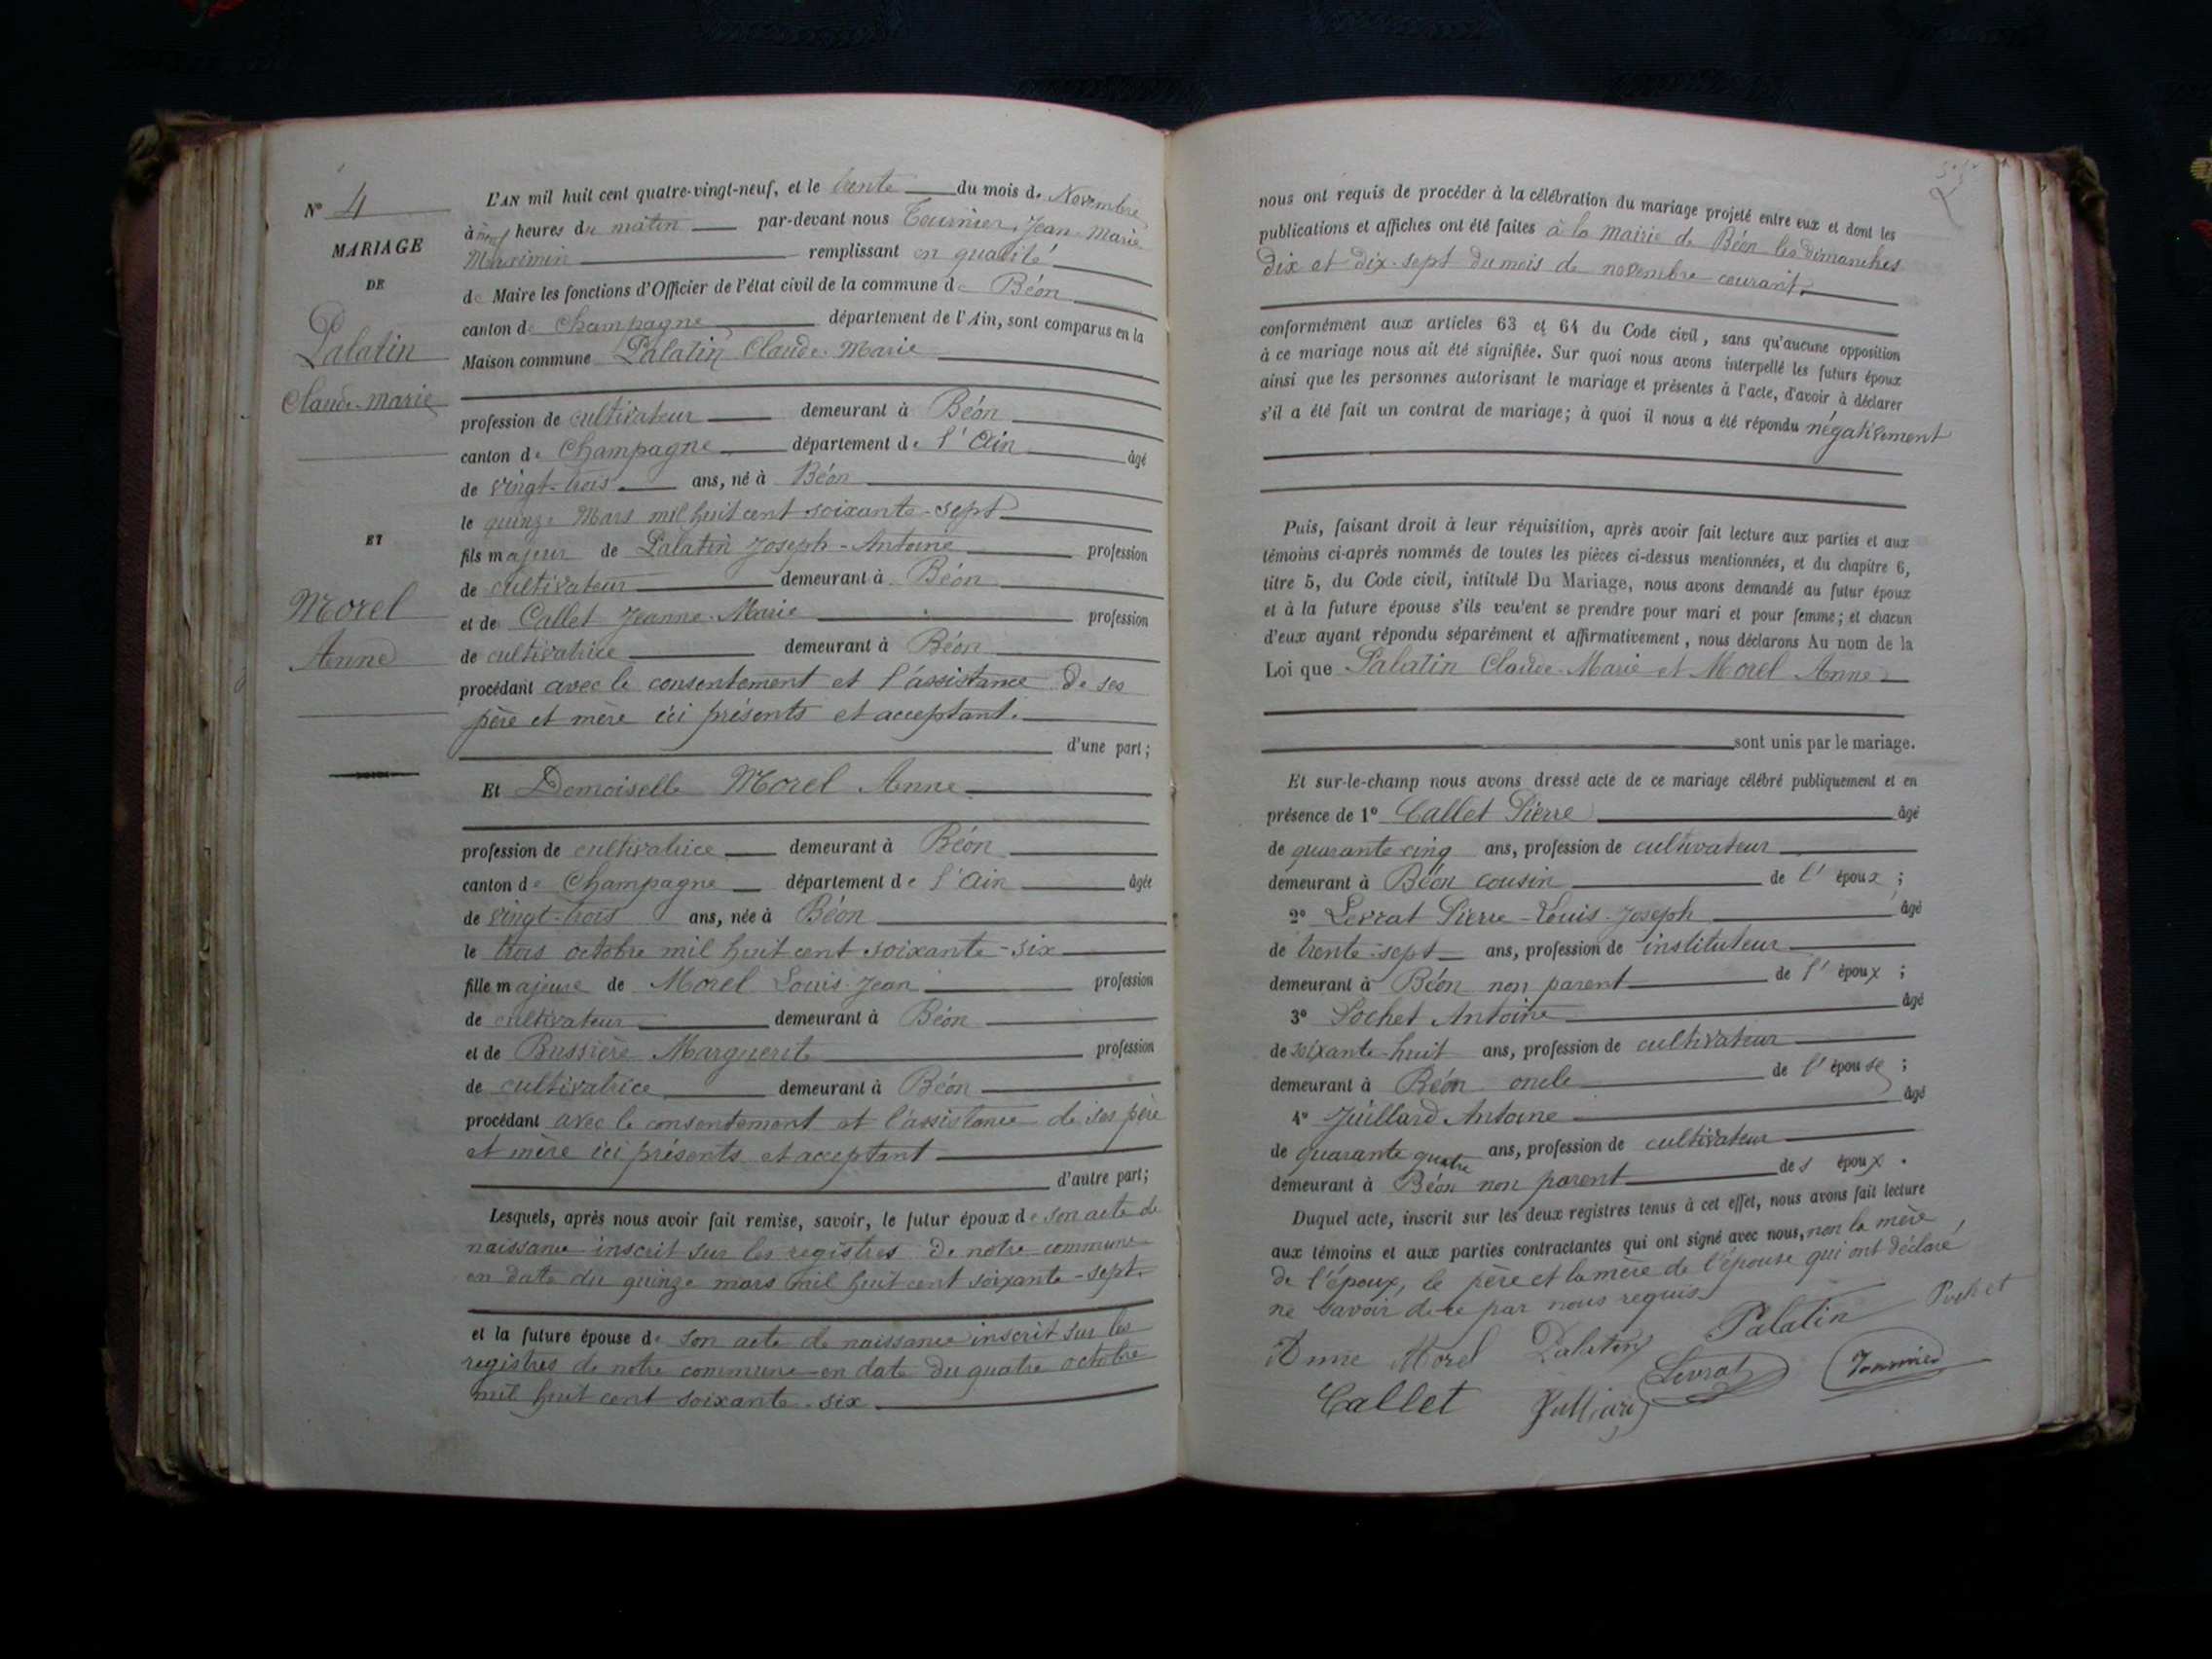 N° 4
MARIAGE
DE
Palatin
Claude-Marie
ET
Morel
Anne
L'AN mil huit cent quatre-vingt-neuf, et le trente du mois de Novembre
à neuf heures du matin par-devant nous Tournier, Jean-Marie
Maximin remplissant en qualité
de Maire les fonctions d'Officier de l'état civil de la commune de Béon
canton de Champagne département de l'Ain, sont comparus en la
Maison commune Palatin Claude-Marie
profession de cultivateur demeurant à Béon
canton de Champagne département de l'Ain âgé
de vingt-trois ans, né à Béon
le quinze Mars mil huit cent soixante-sept
fils majeur de Palatin Joseph-Antoine profession
de cultivateur demeurant à Béon
et de Callet Jeanne-Marie profession
de cultivatrice demeurant à Béon
procédant avec le consentement et l'assistance de ses
père et mère ici présents et acceptant.
d'une part;
Et Demoiselle Morel Anne
profession de cultivatrice demeurant à Béon
canton de Champagne département de l'Ain âgée
de vingt-trois ans, née à Béon
le trois octobre mil huit cent soixante-six
fille majeure de Morel Louis-Jean profession
de cultivateur demeurant à Béon
et de Bussière Marguerite profession
de cultivatrice demeurant à Béon
procédant avec le consentement et l'assistance de ses père
et mère ici présents et acceptant
d'autre part;
Lesquels, après nous avoir fait remise, savoir, le futur époux de son acte de
naissance inscrit sur les registres de notre commune
en date du quinze mars mil huit cent soixante-sept.
et la future épouse de son acte de naissance inscrit sur les
registres de notre commune en date du quatre octobre
mil huit cent soixante-six
nous ont requis de procéder à la célébration du mariage projeté entre eux et dont les
publications et affiches ont été faites à la mairie de Béon les dimanches
dix et dix-sept du mois de novembre courant.
conformément aux articles 63 et 64 du Code civil, sans qu'aucune opposition
à ce mariage nous ait été signifiée. Sur quoi nous avons interpellé les futurs époux
ainsi que les personnes autorisant le mariage et présentes à l'acte, d'avoir à déclarer
s'il a été fait un contrat de mariage; à quoi il nous a été répondu négativement
Puis, faisant droit à leur réquisition, après avoir fait lecture aux parties et aux
témoins ci-après nommés de toutes les pièces ci-dessus mentionnées, et du chapitre 6,
titre 5, du Code civil, intitulé Du Mariage, nous avons demandé au futur époux
et à la future épouse s'ils veulent se prendre pour mari et pour femme; et chacun
d'eux ayant répondu séparément et affirmativement, nous déclarons Au nom de la
Loi que Palatin Claude-Marie et Morel Anne
sont unis par le mariage.
Et sur-le-champ nous avons dressé acte de ce mariage célébré publiquement et en
présence de 1° Callet Pierre âgé
de quarante cinq ans, profession de cultivateur
demeurant à Béon cousin de l'époux;
2° Levrat Pierre-Louis-Joseph âgé
de trente-sept ans, profession de instituteur
demeurant à Béon non parent de l'époux;
3° Pochet Antoine âgé
de soixante-huit ans, profession de cultivateur
demeurant à Béon oncle de l'épouse;
4° Juillard Antoine âgé
de quarante quatre ans, profession de cultivateur
demeurant à Béon non parent des époux.
Duquel acte, inscrit sur les deux registres tenus à cet effet, nous avons fait lecture
aux témoins et aux parties contractantes qui ont signé avec nous, non la mère
de l'époux, le père et la mère de l'épouse qui ont déclaré
ne savoir de ce par nous requis.
Anne Morel Palatin Palatin Pochet
Callet Julliard Levrat Tournier